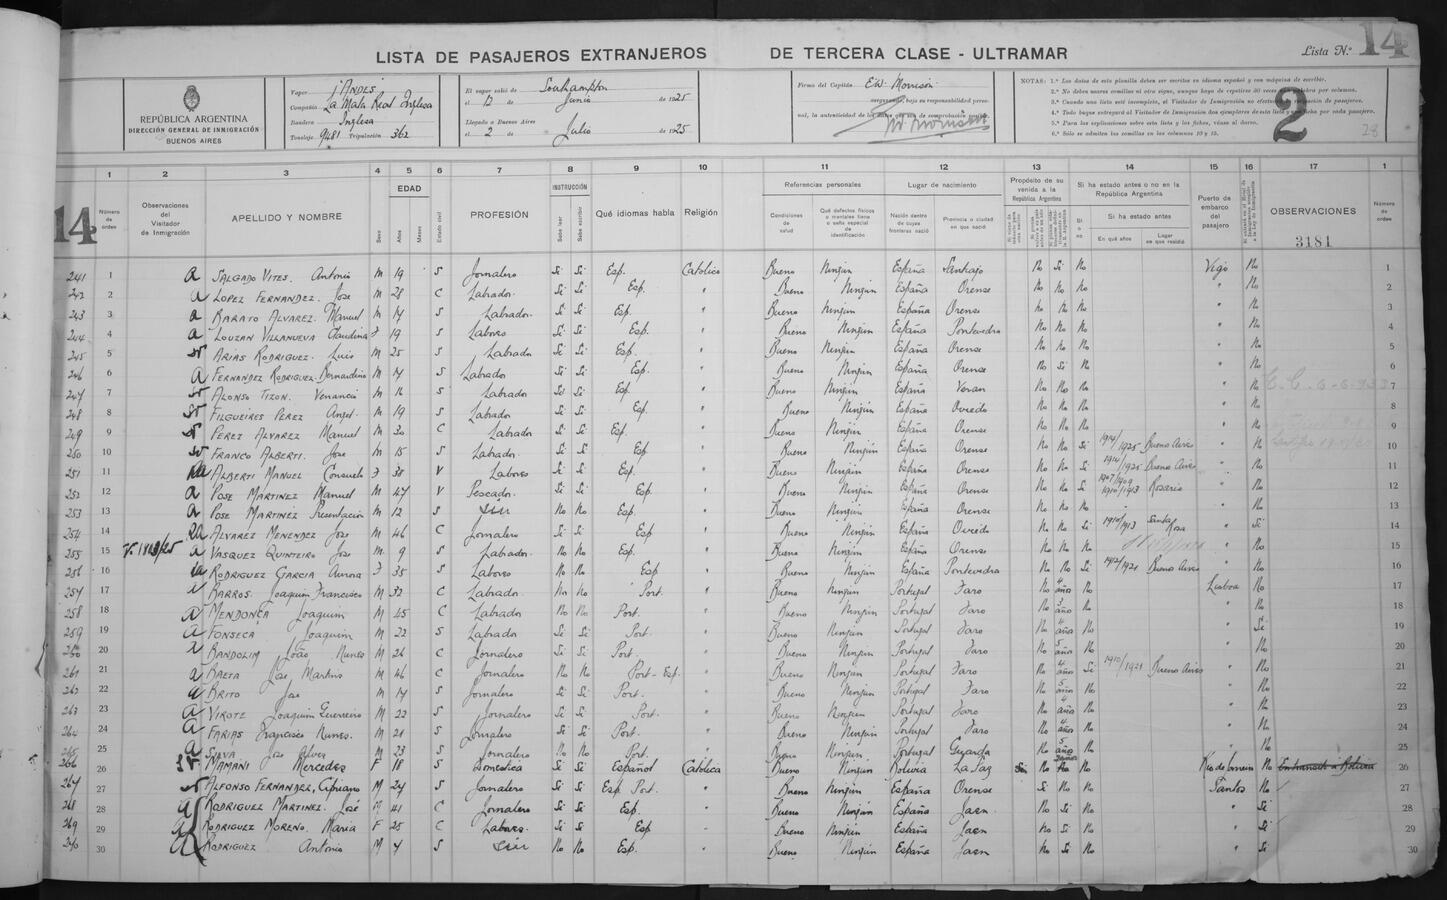 LISTA DE PASAJEROS EXTRANJEROS DE TERCERA CLASE - ULTRAMAR
Lista N.º 14
REPÚBLICA ARGENTINA
DIRECCIÓN GENERAL DE INMIGRACIÓN
BUENOS AIRES
Vapor "ANDES"
Compañía La Mala Real Inglesa
Bandera Inglesa
Tonelaje 9481 Tripulación 362
El vapor salió de Southampton
el 12 de Junio de 1925
Llegado a Buenos Aires
el 2 de Julio de 1925
Firma del Capitán E.W. Morrison
asegurando, bajo su responsabilidad personal, la autenticidad de los datos que son de comprobación posible.
NOTAS: 1.ª Los datos de esta planilla deben ser escritos en idioma español y con máquina de escribir.
2
28
1 2 3 4 5 6 7 8 9 10 11 12 13 14 15 16 17 1
14
Número de orden
Observaciones del Visitador de Inmigración
APELLIDO Y NOMBRE
Sexo
EDAD
Años
Meses
Estado civil
PROFESIÓN
INSTRUCCIÓN
Sabe leer
Sabe escribir
Qué idiomas habla
Religión
Referencias personales
Condiciones de salud
Qué defectos físicos o mentales tiene o seña especial de identificación
Lugar de nacimiento
Nación dentro de cuyas fronteras nació
Provincia o ciudad en que nació
Propósito de su venida a la República Argentina
Si ha estado antes o no en la República Argentina
Si o no
Si ha estado antes
En qué años
Lugar en que residió
Puerto de embarco del pasajero
OBSERVACIONES
3181
Número de orden
241 1 a SALGADO VITES. Antonio M 19 S Jornalero Si Si Esp. Católico Bueno Ningún España Santiago No Si No Vigo No 1
242 2 a LOPEZ FERNANDEZ. Jose M 28 C Labrador Si Si Esp. " Bueno Ningún España Orense No No No " No 2
243 3 a BARATO ALVAREZ. Manuel M 17 S Labrador Si Si Esp. " Bueno Ningún España Orense No No No " No 3
244 4 a LOUZAN VILLANUEVA Claudina F 19 S Labores Si Si Esp. " Bueno Ningún España Pontevedra No No No " No 4
245 5 ARIAS RODRIGUEZ. Luis M 25 S Labrador Si Si Esp. " Bueno Ningún España Orense No No No " No 5
246 6 a FERNANDEZ RODRIGUEZ. Bernardino M 17 S Labrador Si Si Esp. " Bueno Ningún España Orense No Si No " No 6
247 7 ALONSO TIZON. Venancio M 16 S Labrador Si Si Esp. " Bueno Ningún España No No No " No 7
248 8 FILGUEIRES PEREZ Angel. M 19 S Labrador Si Si Esp. " Bueno Ningún España Oviedo No No No " No 8
249 9 PEREZ ALVAREZ Manuel M 30 C Labrador Si Si Esp. " Bueno Ningún España Orense No No No " No 9
250 10 FRANCO ALBERTI. Jose M 15 S Labrador Si Si Esp. " Bueno Ningún España Orense No No Si 1914/1925 Buenos Aires " No 10
251 11 ALBERTI MANUEL Consuelo F 38 V Labores Si Si Esp. " Bueno Ningún España Orense No No Si 1914/1925 Buenos Aires " No 11
252 12 a POSE MARTINEZ Manuel M 47 V Pescador Si Si Esp. " Bueno Ningún España Orense No No Si 1907/1909 1910/1913 Rosario " No 12
253 13 a POSE MARTINEZ Presentacion M 12 S Sin No No Esp. " Bueno Ningún España Orense No No No " No 13
254 14 ALVAREZ MENENDEZ Jose M 46 C Jornalero Si Si Esp " Bueno Ningún España Oviedo No No Si 1910/1913 Santa Rosa " Si 14
255 15 a VASQUEZ QUINTEIRO Jose M 9 S Labrador No No Esp. " Bueno Ningún España Orense No No No " No 15
256 16 RODRIGUEZ GARCIA Aurora F 35 S Labores No No Esp " Bueno Ningún España Pontevedra No No Si 1912/1921 Buenos Aires " No 16
257 17 BARROS. Joaquim Francisco M 32 C Labrador No No Port. " Bueno Ningún Portugal Faro No 4 años No Lisboa No 17
258 18 a MENDONÇA Joaquim M 45 C Labrador No No Port. " Bueno Ningún Portugal Faro No 3 año No " No 18
259 19 a FONSECA Joaquim M 22 S Labrador Si Si Port. " Bueno Ningún Portugal Faro No 4 año No " Si 19
260 20 BANDOLIM João Nunes M 26 C Jornalero Si Si Port. " Bueno Ningún Portugal Faro No 5 año No " No 20
261 21 a BAETA Jose Martins M 46 C Jornalero No No Port-Esp. " Bueno Ningún Portugal Faro No 4 año Si 1910/1921 Buenos Aires " No 21
262 22 a BRITO Jose M 17 S Jornalero Si Si Port. " Bueno Ningún Portugal Faro No 5 año No " No 22
263 23 a VIROTE Joaquim Guerreiro M 22 S Jornalero Si Si Port. " Bueno Ningún Portugal Faro No 4 año No " No 23
264 24 a FARIAS Francisco Nunes. M 21 S Jornalero Si Si Port. " Bueno Ningún Portugal Faro No 4 años No " No 24
265 25 a SILVA Jose Alves M 23 S Jornalero No No Port. " Bueno Ningún Portugal Guarda No 5 años No " No 25
266 26 MAMANI Mercedes F 18 S Domestica Si Si Español Católica Bueno Ningún Bolivia La Paz Si No No Rio de Janeiro No En transito a Bolivia 26
267 27 ALFONSO FERNANDEZ, Cipriano M 24 S Jornalero Si Si Esp. Port. " Bueno Ningún España Orense Si No No Santos No 27
268 28 a RODRIGUEZ MARTINEZ. José M 41 C Jornalero Si Si Esp. " Bueno Ningún España Jaen No Si No " Si 28
269 29 a RODRIGUEZ MORENO. Maria F 25 C Labores Si Si Esp " Bueno Ningún España Jaen No Si No " Si 29
30 a RODRIGUEZ Antonio M 4 S Sin No No Esp. " Bueno Ningún España Jaen No Si No " Si 30